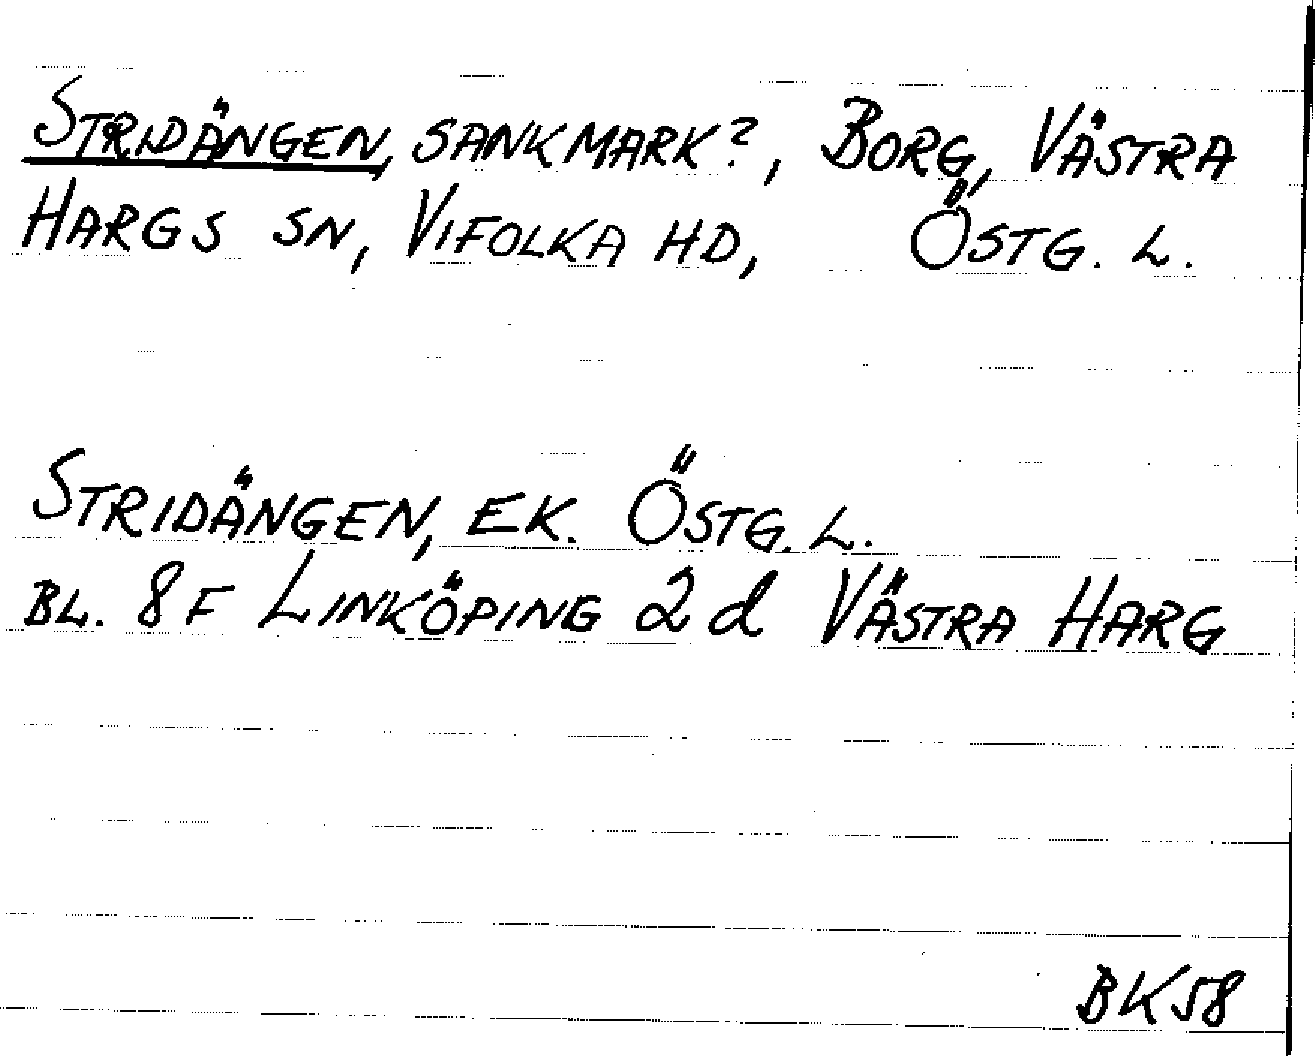 STRIDÄNGEN, SANKMARK?, BORG, VÄSTRA
HARGS SN, VIFOLKA HD, ÖSTG. L.
STRIDÄNGEN, EK. ÖSTG. L.
BL. 8F LINKÖPING 2d VÄSTRA HARG
BK58